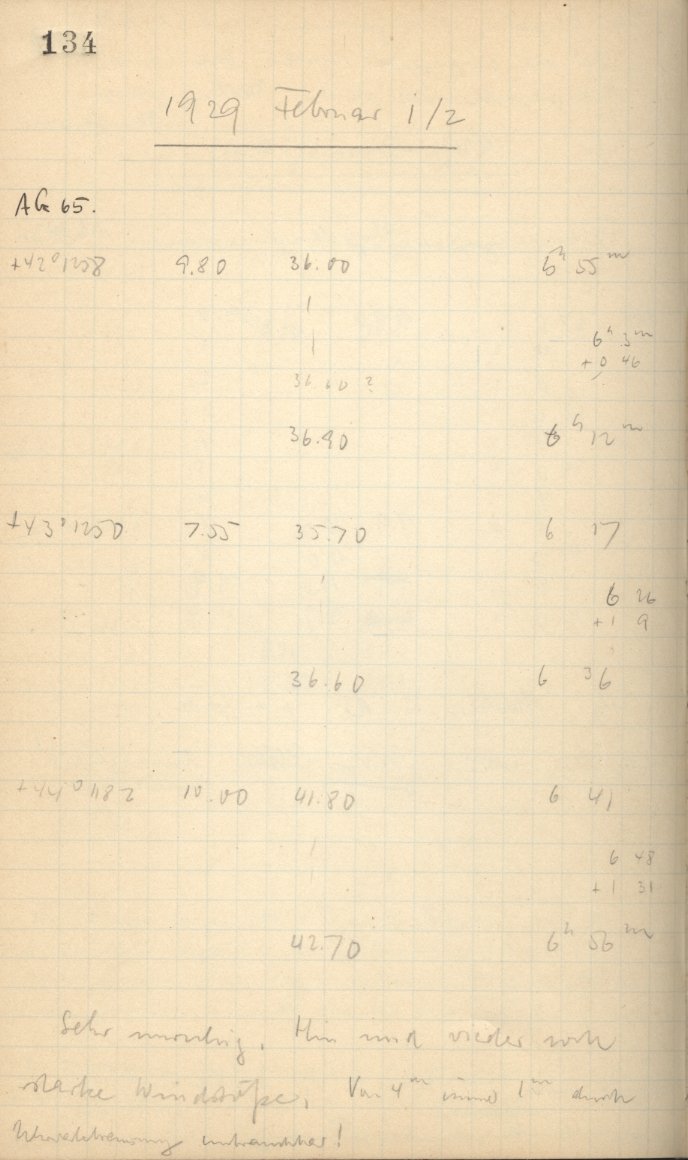 134
1929 Februar 1/2
AG 65.
+42°1258 9.80 36.00 6h 55m
6h 3m
+0 46
36.60 ?
36.90 6h 12m
+43°1250 7.55 35.70 6 17
6 26
+1 9
36.60 6 36
+44°1182 10.00 41.80 6 41
6 48
+1 31
42.70 6h 56m
Sehr unruhig. Hin und wieder
starke Windstöße. Von 4m immer 1m durch
unbrauchbar!